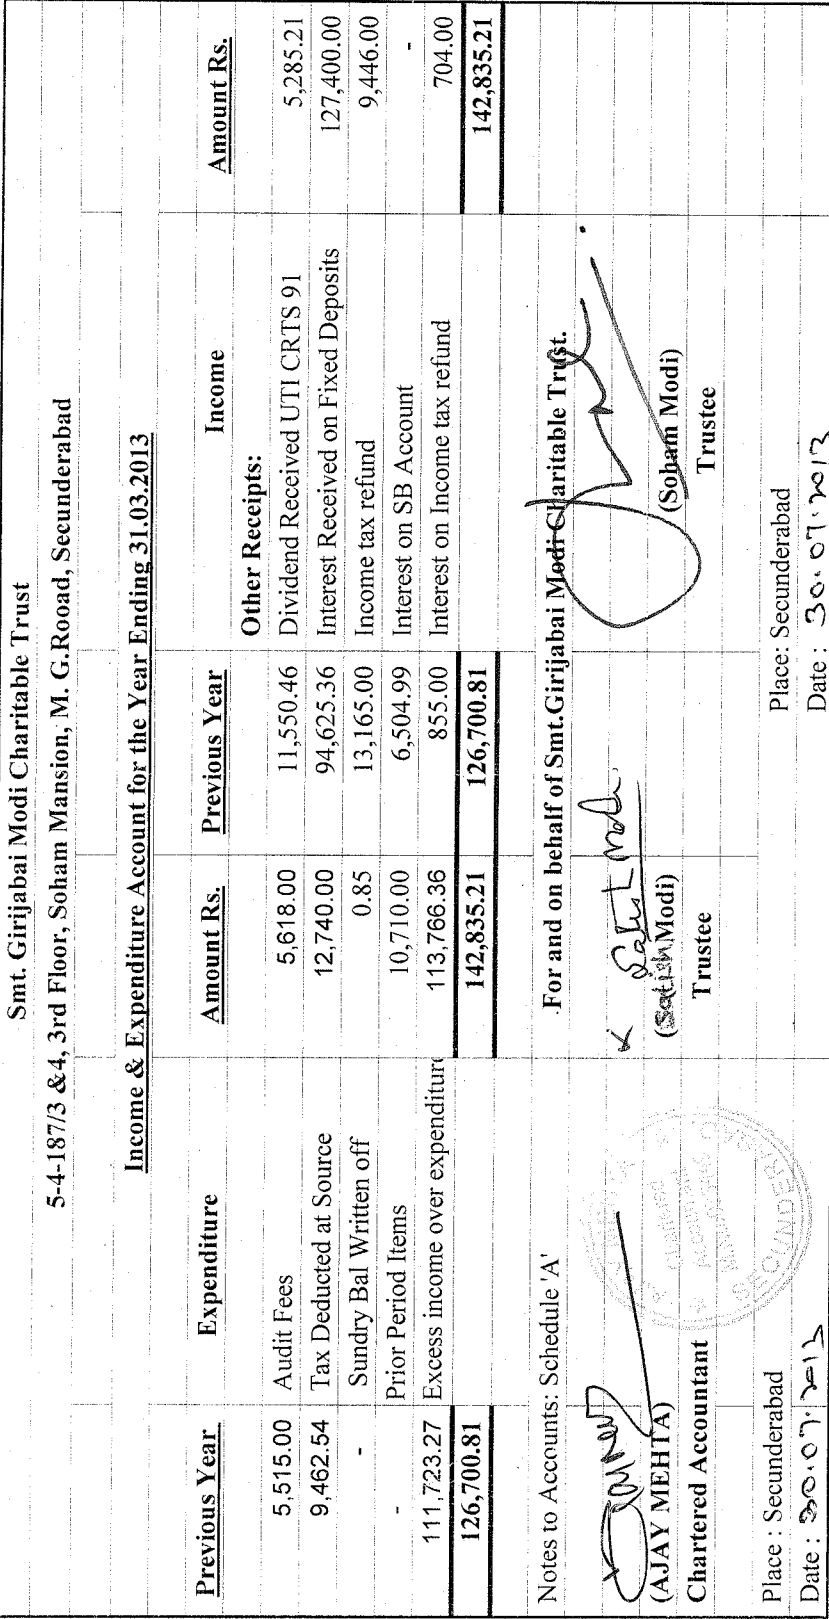 Smt. Girijabai Modi Charitable Trust
5-4-187/3 &4, 3rd Floor, Soham Mansion, M. G.Rooad, Secunderabad
Income & Expenditure Account for the Year Ending 31.03.2013
Previous Year Expenditure Amount Rs. Previous Year Income Amount Rs.
Other Receipts:
5,515.00 Audit Fees 5,618.00 11,550.46 Dividend Received UTI CRTS 91 5,285.21
9,462.54 Tax Deducted at Source 12,740.00 94,625.36 Interest Received on Fixed Deposits 127,400.00
- Sundry Bal Written off 0.85 13,165.00 Income tax refund 9,446.00
- Prior Period Items 10,710.00 6,504.99 Interest on SB Account -
111,723.27 Excess income over expenditure 113,766.36 855.00 Interest on Income tax refund 704.00
126,700.81 142,835.21 126,700.81 142,835.21
Notes to Accounts: Schedule 'A' For and on behalf of Smt.Girijabai Modi Charitable Trust.
x Satish Modi
(AJAY MEHTA) (Satish Modi) (Soham Modi)
Chartered Accountant Trustee Trustee
Chartered
Accountant
SECUNDERABAD
Place : Secunderabad Place: Secunderabad
Date : 30.07.2013 Date : 30.07.2013